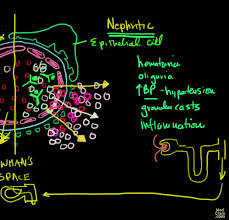 Nephritic
Epithelial Cell
hematuria
oliguria
↑BP - hypertension
granular casts
inflammation
WMAN'S
SPACE